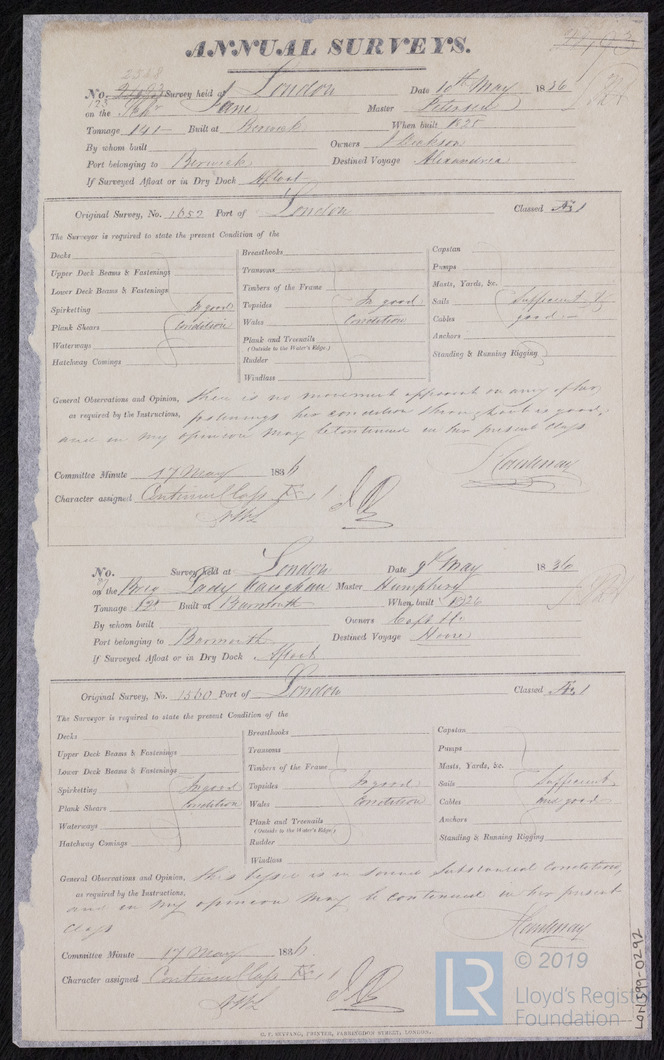 ANNUAL SURVEYS.
2493
2518
No. 2493 Survey held at London Date 10th May 1836
123
on the Schr Jane Master Petersen
Tonnage 141 Built at Berwick When built 1825
By whom built Owners J Dickson
Port belonging to Berwick Destined Voyage Alexandrea
If Surveyed Afloat or in Dry Dock Afloat
Original Survey, No. 1652 Port of London Classed Æ 1
The Surveyor is required to state the present Condition of the
Decks
Upper Deck Beams & Fastenings
Lower Deck Beams & Fastenings
Spirketting In good
Plank Shears Condition
Waterways
Hatchway Comings
Breasthooks
Transoms
Timbers of the Frame
Topsides In good
Wales Condition
Plank and Treenails
(Outside to the Water's Edge.)
Rudder
Windlass
Capstan
Pumps
Masts, Yards, &c.
Sails Sufficient &
Cables good
Anchors
Standing & Running Rigging
General Observations and Opinion, there is no movement apparent on any of her
as required by the Instructions, fastenings her condition throughout is good,
and in my opinion may be continued in her present Class
Committee Minute 17 May 1836
Character assigned Continued Class Æ 1
No. Survey held at London Date 9th May 1836
on the Brig Lady Vaughan Master Humphry
Tonnage 121 Built at Barmouth When built 1826
By whom built Owners Capt H
Port belonging to Barmouth Destined Voyage Home
If Surveyed Afloat or in Dry Dock Afloat
Original Survey, No. 1560 Port of London Classed Æ 1
The Surveyor is required to state the present Condition of the
Decks
Upper Deck Beams & Fastenings
Lower Deck Beams & Fastenings
Spirketting In good
Plank Shears Condition
Waterways
Hatchway Comings
Breasthooks
Transoms
Timbers of the Frame
Topsides In good
Wales Condition
Plank and Treenails
(Outside to the Water's Edge.)
Rudder
Windlass
Capstan
Pumps
Masts, Yards, &c.
Sails Sufficient
Cables and good
Anchors
Standing & Running Rigging
General Observations and Opinion, this vessel is in sound Substantial Condition,
as required by the Instructions,
and in my opinion may be continued in her present
Class
Committee Minute 17 May 1836
Character assigned Continued Class Æ 1
PRINTER, FARRINGDON STREET, LONDON.
LON599-0292
LR
© 2019
Lloyd's Register
Foundation